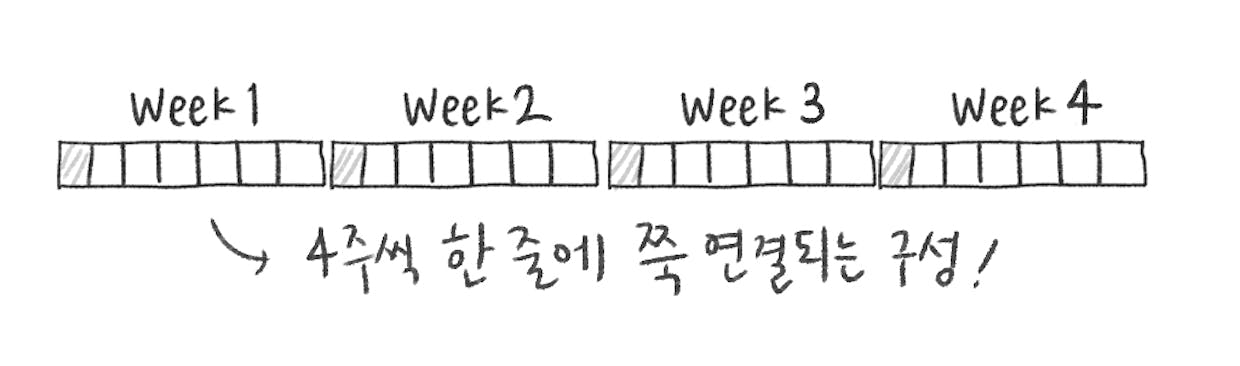 Week 1 Week 2 Week 3 Week 4
4주씩 한 줄에 쭉 연결되는 구성!